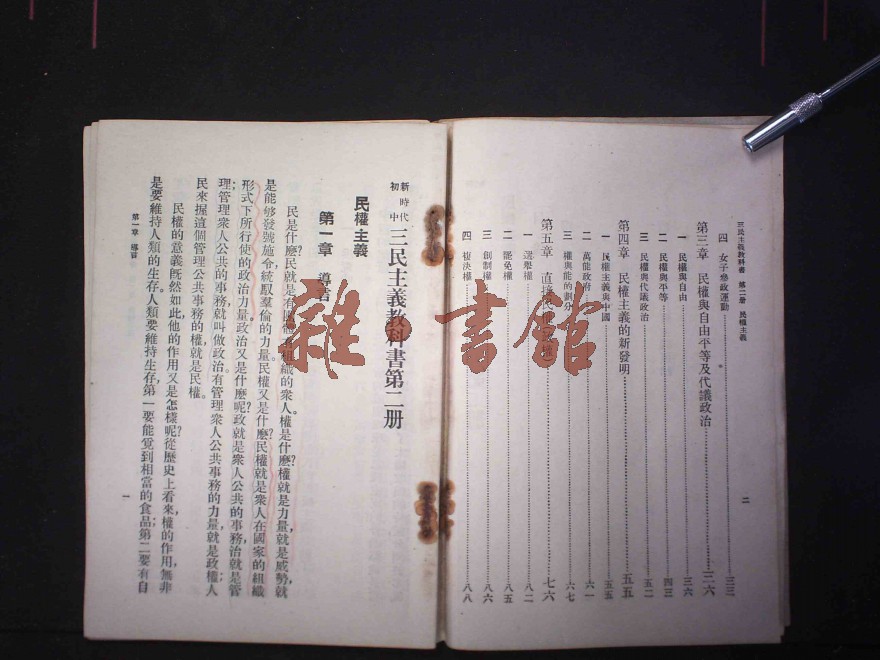 三民主義教科書 第二册 民權主義
二
四 女子參政運動……三三
第三章 民權與自由平等及代議政治……三六
一 民權與自由……三六
二 民權與平等……四三
三 民權與代議政治……五二
第四章 民權主義的新發明……五五
一 民權主義與中國……五五
二 萬能政府……六一
三 權與能的劃分……六七
第五章 直接……七六
一 選舉權……八二
二 罷免權……八五
三 創制權……八六
四 複決權……八八
新時代
初中
三民主義教科書第二册
民權主義
第一章 導言
民是什麽?民就是有團體有組織的衆人。權是什麽?權就是力量,就是威勢,就
是能够發號施令統馭羣倫的力量。民權又是什麽?民權就是衆人在國家的組織
形式下所行使的政治力量。政治又是什麽呢?政就是衆人公共的事務,治就是管
理;管理衆人公共的事務,就叫做政治。有管理衆人公共事務的力量,就是政權;人
民來握這個管理公共事務的權,就是民權。
民權的意義旣然如此,他的作用又是怎樣呢?從歷史上看來,權的作用,無非
是要維持人類的生存。人類要維持生存,第一要能覓到相當的食品;第二要有自
第一章 導言
一
雜·書館